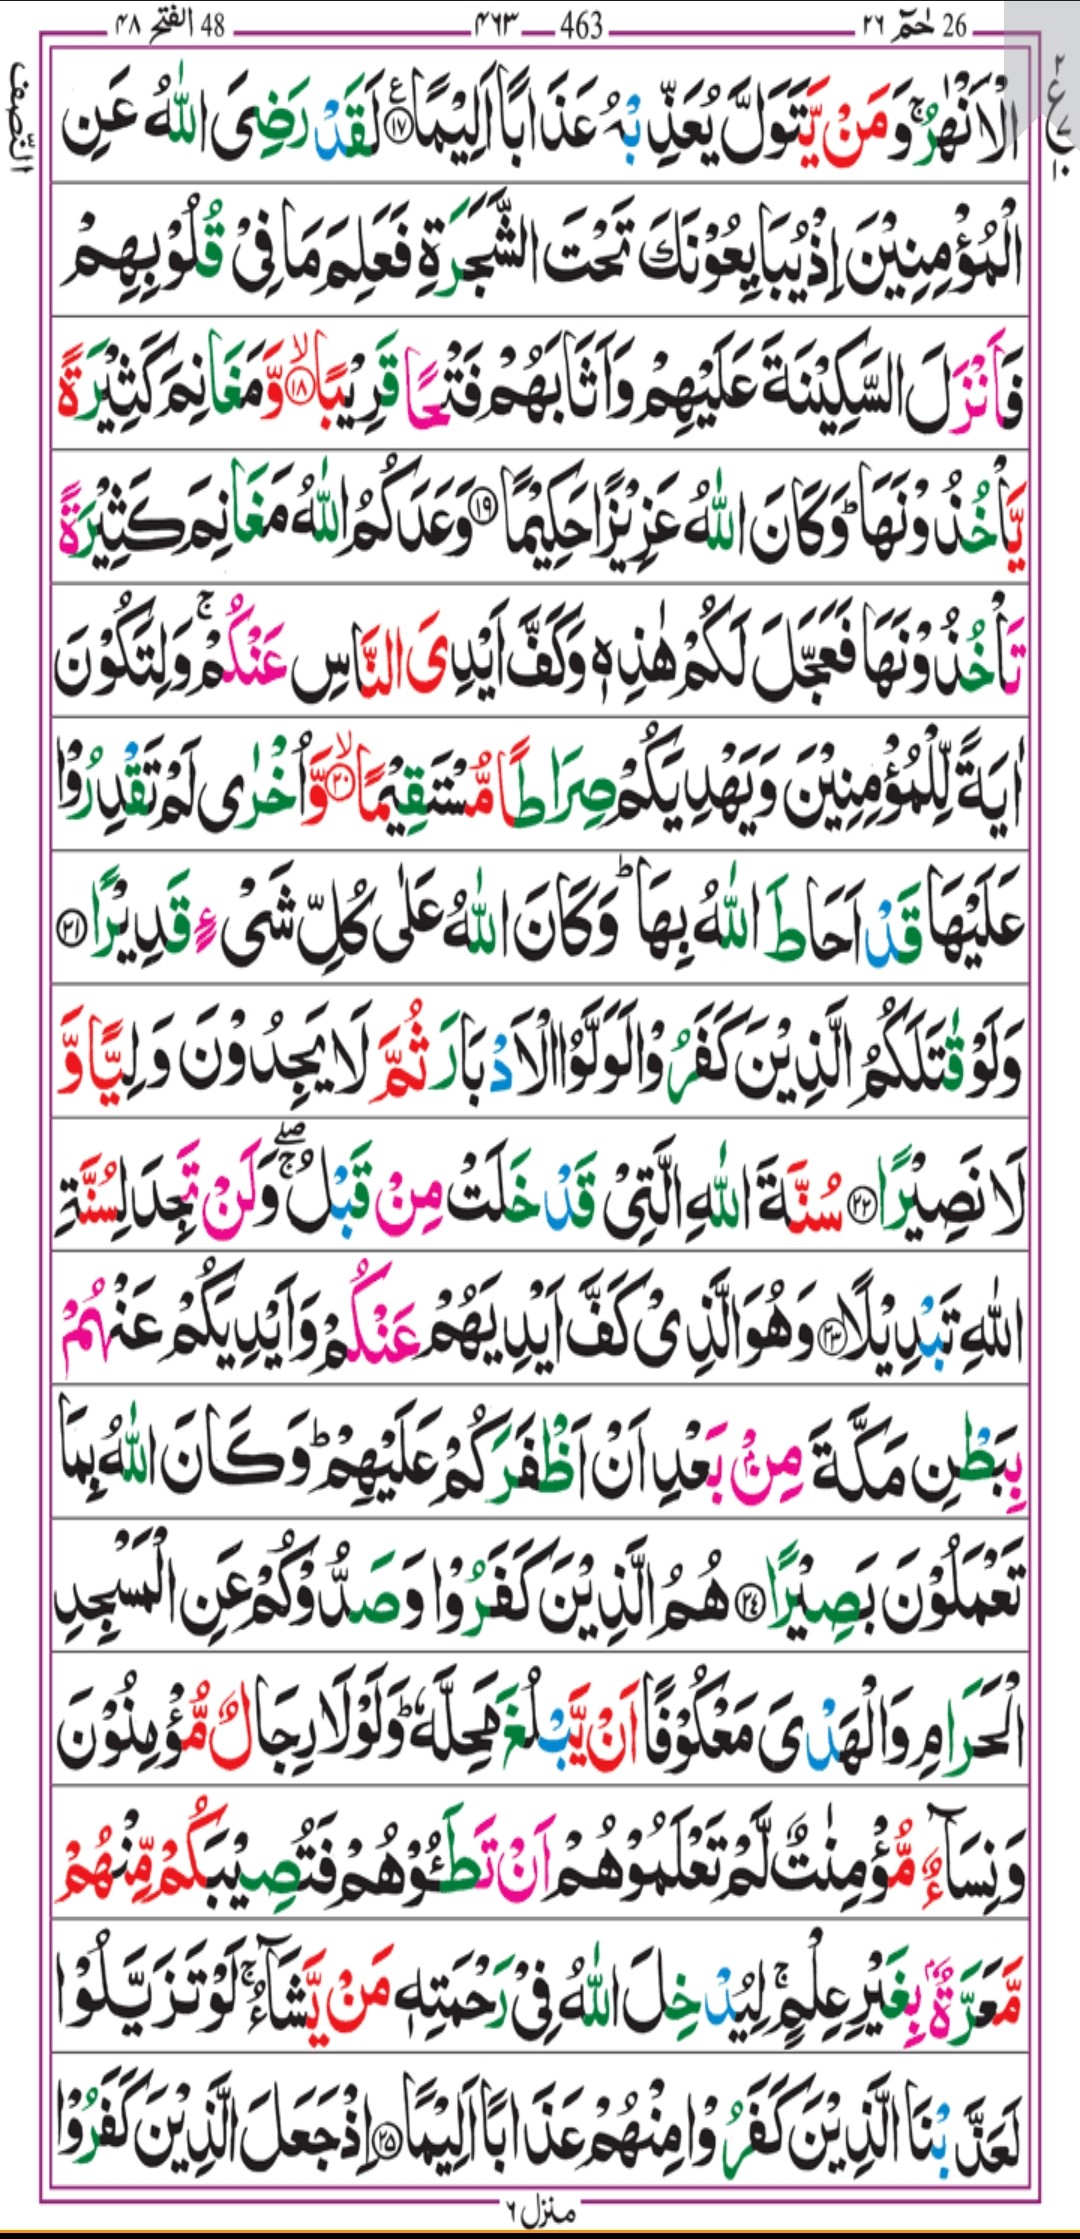 26 حٰمٓ ٢٦ 463 ٤٦٣ 48 الفتح ٤٨
٢ ع ٧ ١٠
النّصف
الْاَنْهٰرُ ۚ وَ مَنْ یَّتَوَلَّ یُعَذِّبْهُ عَذَابًا اَلِیْمًا ﴿۱۷﴾ ع لَقَدْ رَضِیَ اللّٰهُ عَنِ
الْمُؤْمِنِیْنَ اِذْ یُبَایِعُوْنَكَ تَحْتَ الشَّجَرَةِ فَعَلِمَ مَا فِیْ قُلُوْبِهِمْ
فَاَنْزَلَ السَّكِیْنَةَ عَلَیْهِمْ وَ اَثَابَهُمْ فَتْحًا قَرِیْبًا ۙ﴿۱۸﴾ وَّ مَغَانِمَ كَثِیْرَةً
یَّاْخُذُوْنَهَا ؕ وَ كَانَ اللّٰهُ عَزِیْزًا حَكِیْمًا ﴿۱۹﴾ وَعَدَكُمُ اللّٰهُ مَغَانِمَ كَثِیْرَةً
تَاْخُذُوْنَهَا فَعَجَّلَ لَكُمْ هٰذِهٖ وَ كَفَّ اَیْدِیَ النَّاسِ عَنْكُمْ ۚ وَ لِتَكُوْنَ
اٰیَةً لِّلْمُؤْمِنِیْنَ وَ یَهْدِیَكُمْ صِرَاطًا مُّسْتَقِیْمًا ۙ﴿۲۰﴾ وَّ اُخْرٰی لَمْ تَقْدِرُوْا
عَلَیْهَا قَدْ اَحَاطَ اللّٰهُ بِهَا ؕ وَ كَانَ اللّٰهُ عَلٰی كُلِّ شَیْءٍ قَدِیْرًا ﴿۲۱﴾
وَ لَوْ قٰتَلَكُمُ الَّذِیْنَ كَفَرُوْا لَوَلَّوُا الْاَدْبَارَ ثُمَّ لَا یَجِدُوْنَ وَلِیًّا وَّ
لَا نَصِیْرًا ﴿۲۲﴾ سُنَّةَ اللّٰهِ الَّتِیْ قَدْ خَلَتْ مِنْ قَبْلُ ۖۚ وَ لَنْ تَجِدَ لِسُنَّةِ
اللّٰهِ تَبْدِیْلًا ﴿۲۳﴾ وَ هُوَ الَّذِیْ كَفَّ اَیْدِیَهُمْ عَنْكُمْ وَ اَیْدِیَكُمْ عَنْهُمْ
بِبَطْنِ مَكَّةَ مِنْۢ بَعْدِ اَنْ اَظْفَرَكُمْ عَلَیْهِمْ ؕ وَ كَانَ اللّٰهُ بِمَا
تَعْمَلُوْنَ بَصِیْرًا ﴿۲۴﴾ هُمُ الَّذِیْنَ كَفَرُوْا وَ صَدُّوْكُمْ عَنِ الْمَسْجِدِ
الْحَرَامِ وَ الْهَدْیَ مَعْكُوْفًا اَنْ یَّبْلُغَ مَحِلَّهٗ ؕ وَ لَوْ لَا رِجَالٌ مُّؤْمِنُوْنَ
وَ نِسَآءٌ مُّؤْمِنٰتٌ لَّمْ تَعْلَمُوْهُمْ اَنْ تَطَـُٔوْهُمْ فَتُصِیْبَكُمْ مِّنْهُمْ
مَّعَرَّةٌۢ بِغَیْرِ عِلْمٍ ۚ لِیُدْخِلَ اللّٰهُ فِیْ رَحْمَتِهٖ مَنْ یَّشَآءُ ۚ لَوْ تَزَیَّلُوْا
لَعَذَّبْنَا الَّذِیْنَ كَفَرُوْا مِنْهُمْ عَذَابًا اَلِیْمًا ﴿۲۵﴾ اِذْ جَعَلَ الَّذِیْنَ كَفَرُوْا
منزل ٦